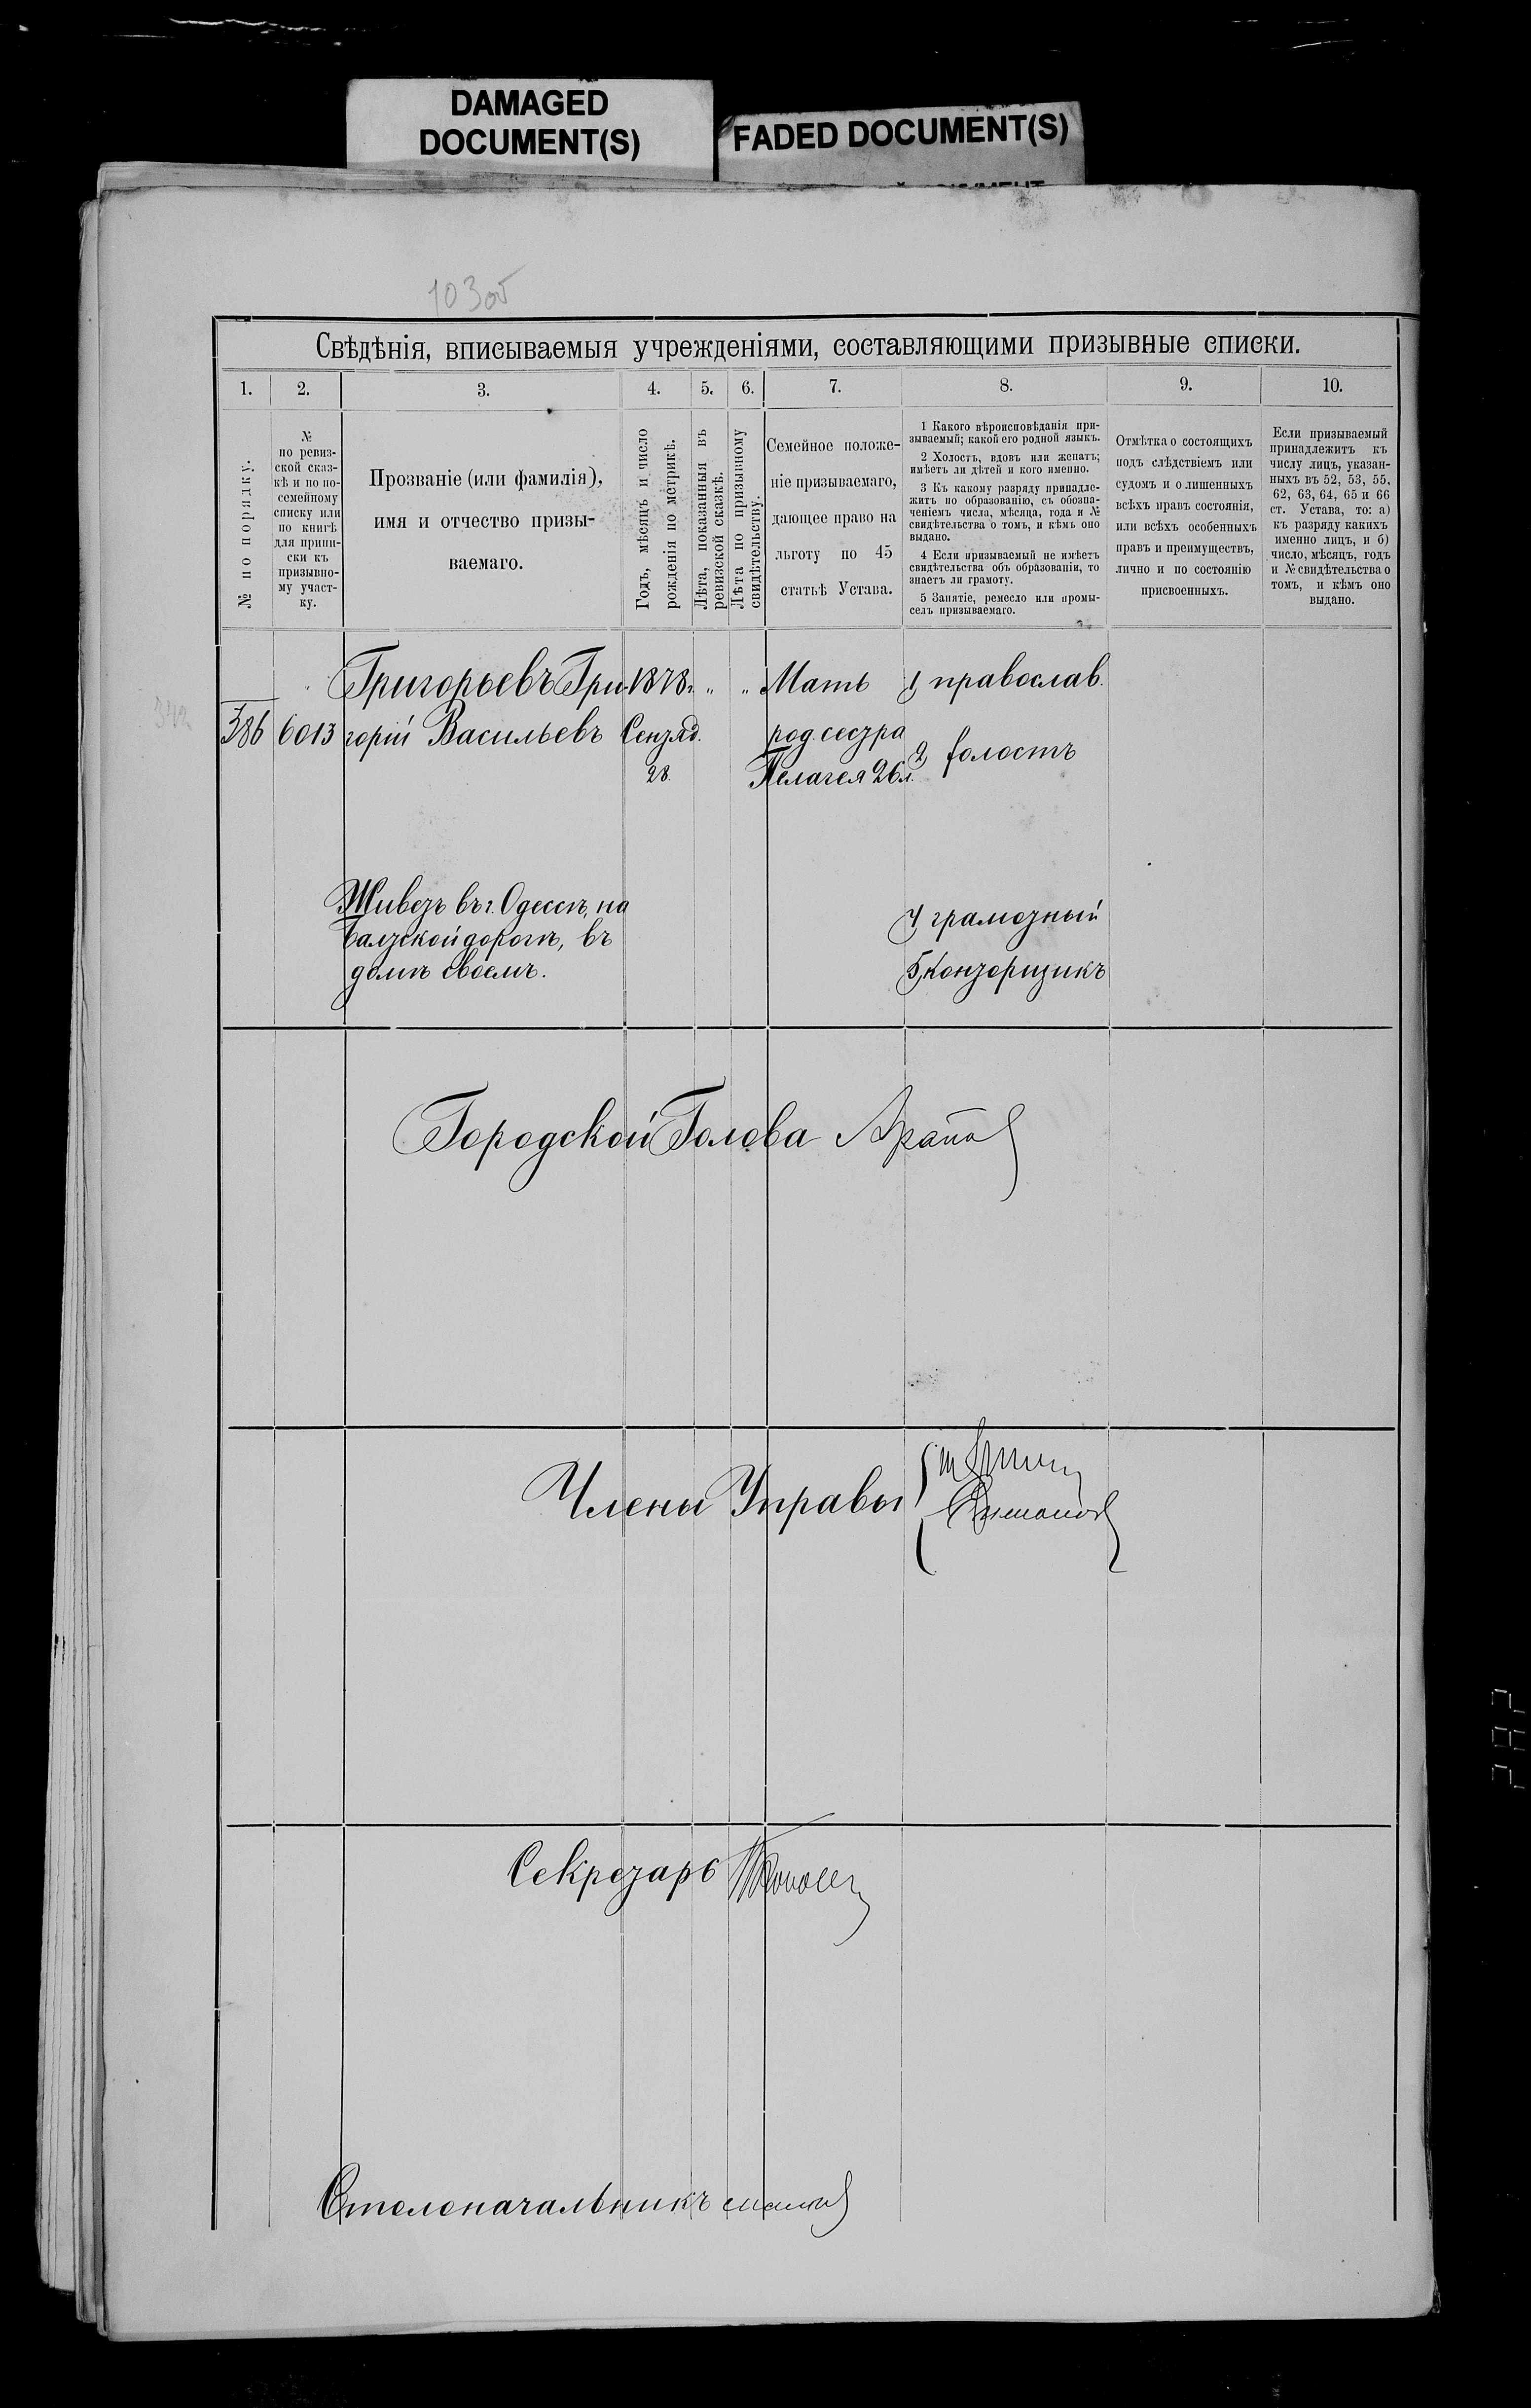 DAMAGED
DOCUMENT(S)
FADED DOCUMENT(S)
103об
Свѣдѣнія, вписываемыя учрежденіями, составляющими призывные списки.
1. 2. 3. 4. 5. 6. 7. 8. 9. 10.
№ по порядку.
№
по ревиз-
ской сказ-
кѣ и по по-
семейному
списку или
по книгѣ
для припи-
ски къ
призывно-
му участ-
ку.
Прозваніе (или фамилія),
имя и отчество призы-
ваемаго.
Годъ, мѣсяцъ и число
рожденія по метрикѣ.
Лѣта, показанныя въ
ревизской сказкѣ.
Лѣта по призывному
свидѣтельству.
Семейное положе-
ніе призываемаго,
дающее право на
льготу по 45
статьѣ Устава.
1 Какого вѣроисповѣданія при-
зываемый; какой его родной языкъ.
2 Холостъ, вдовъ или женатъ;
имѣетъ ли дѣтей и кого именно.
3 Къ какому разряду принадле-
житъ по образованію, съ обозна-
ченіемъ числа, мѣсяца, года и №
свидѣтельства о томъ, и кѣмъ оно
выдано.
4 Если призываемый не имѣетъ
свидѣтельства объ образованіи, то
знаетъ ли грамоту.
5 Занятіе, ремесло или промы-
селъ призываемаго.
Отмѣтка о состоящихъ
подъ слѣдствіемъ или
судомъ и о лишенныхъ
всѣхъ правъ состоянія,
или всѣхъ особенныхъ
правъ и преимуществъ,
лично и по состоянію
присвоенныхъ.
Если призываемый
принадлежитъ къ
числу лицъ, указан-
ныхъ въ 52, 53, 55,
62, 63, 64, 65 и 66
ст. Устава, то: а)
къ разряду какихъ
именно лицъ, и б)
число, мѣсяцъ, годъ
и № свидѣтельства о
томъ, и кѣмъ оно
выдано.
Григорьевъ Гри- 1878г. " " Мать 1, православ.
342
386 6013 горій Васильевъ Сентяб. род. сестра
28. Пелагея 26 л. 2, холостъ
Живетъ въ г. Одессѣ, на
Балтской дорогѣ, въ
домѣ своемъ.
4 грамотный
5, конторщикъ
Городской Голова
Члены Управы
Секретарь
Столоначальникъ